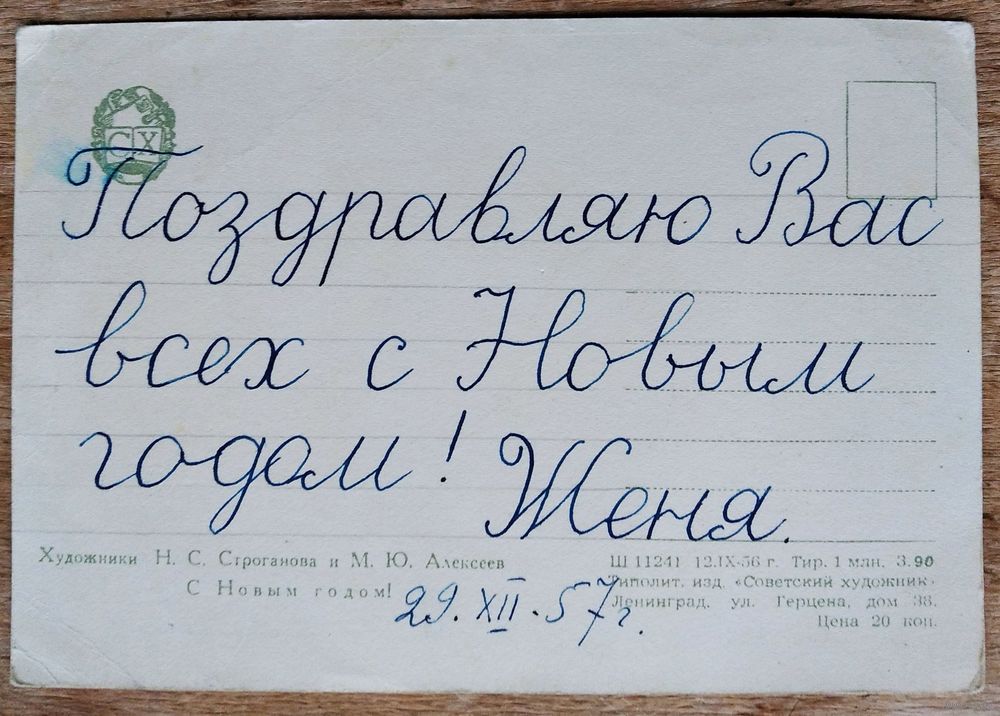 СХ
Поздравляю Вас
всех с Новым
годом! Женя.
Художники Н. С. Строганова и М. Ю. Алексеев
С Новым годом!
29.XII.57г.
Ш 11241 12.IX-56 г. Тир. 1 млн. З.90
Типолит. изд. «Советский художник»
Ленинград, ул. Герцена, дом 38.
Цена 20 коп.